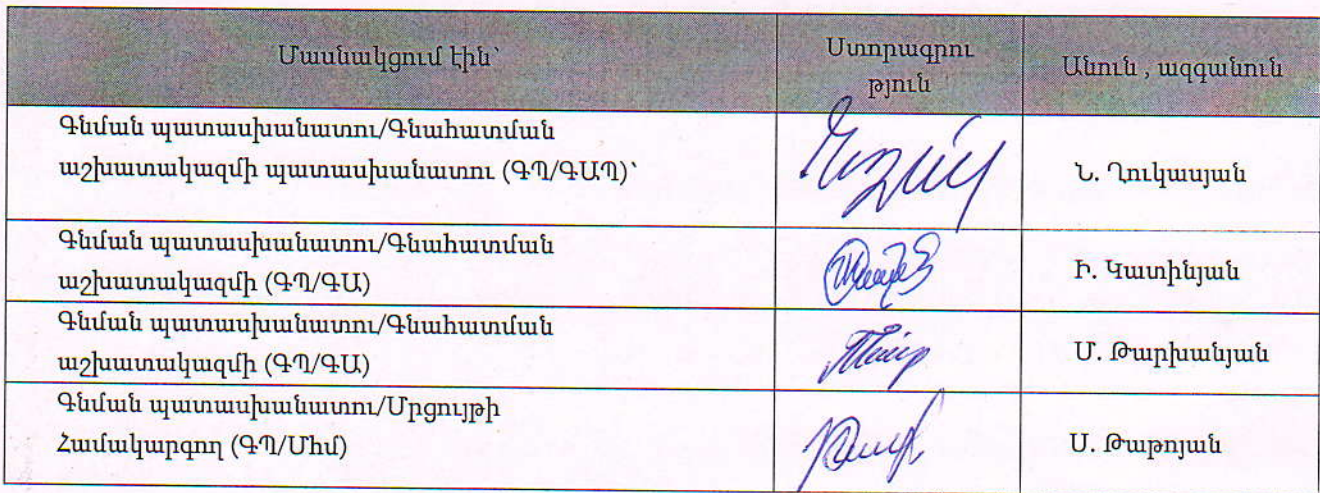 Մասնակցում էին՝
Ստորագրու
թյուն
Անուն , ազգանուն
Գնման պատասխանատու/Գնահատման
աշխատակազմի պատասխանատու (ԳՊ/ԳԱՊ)՝
Ն. Ղուկասյան
Գնման պատասխանատու/Գնահատման
աշխատակազմի (ԳՊ/ԳԱ)
Ի. Կատինյան
Գնման պատասխանատու/Գնահատման
աշխատակազմի (ԳՊ/ԳԱ)
Մ. Թարխանյան
Գնման պատասխանատու/Մրցույթի
Համակարգող (ԳՊ/Միմ)
Ս. Թաթոյան